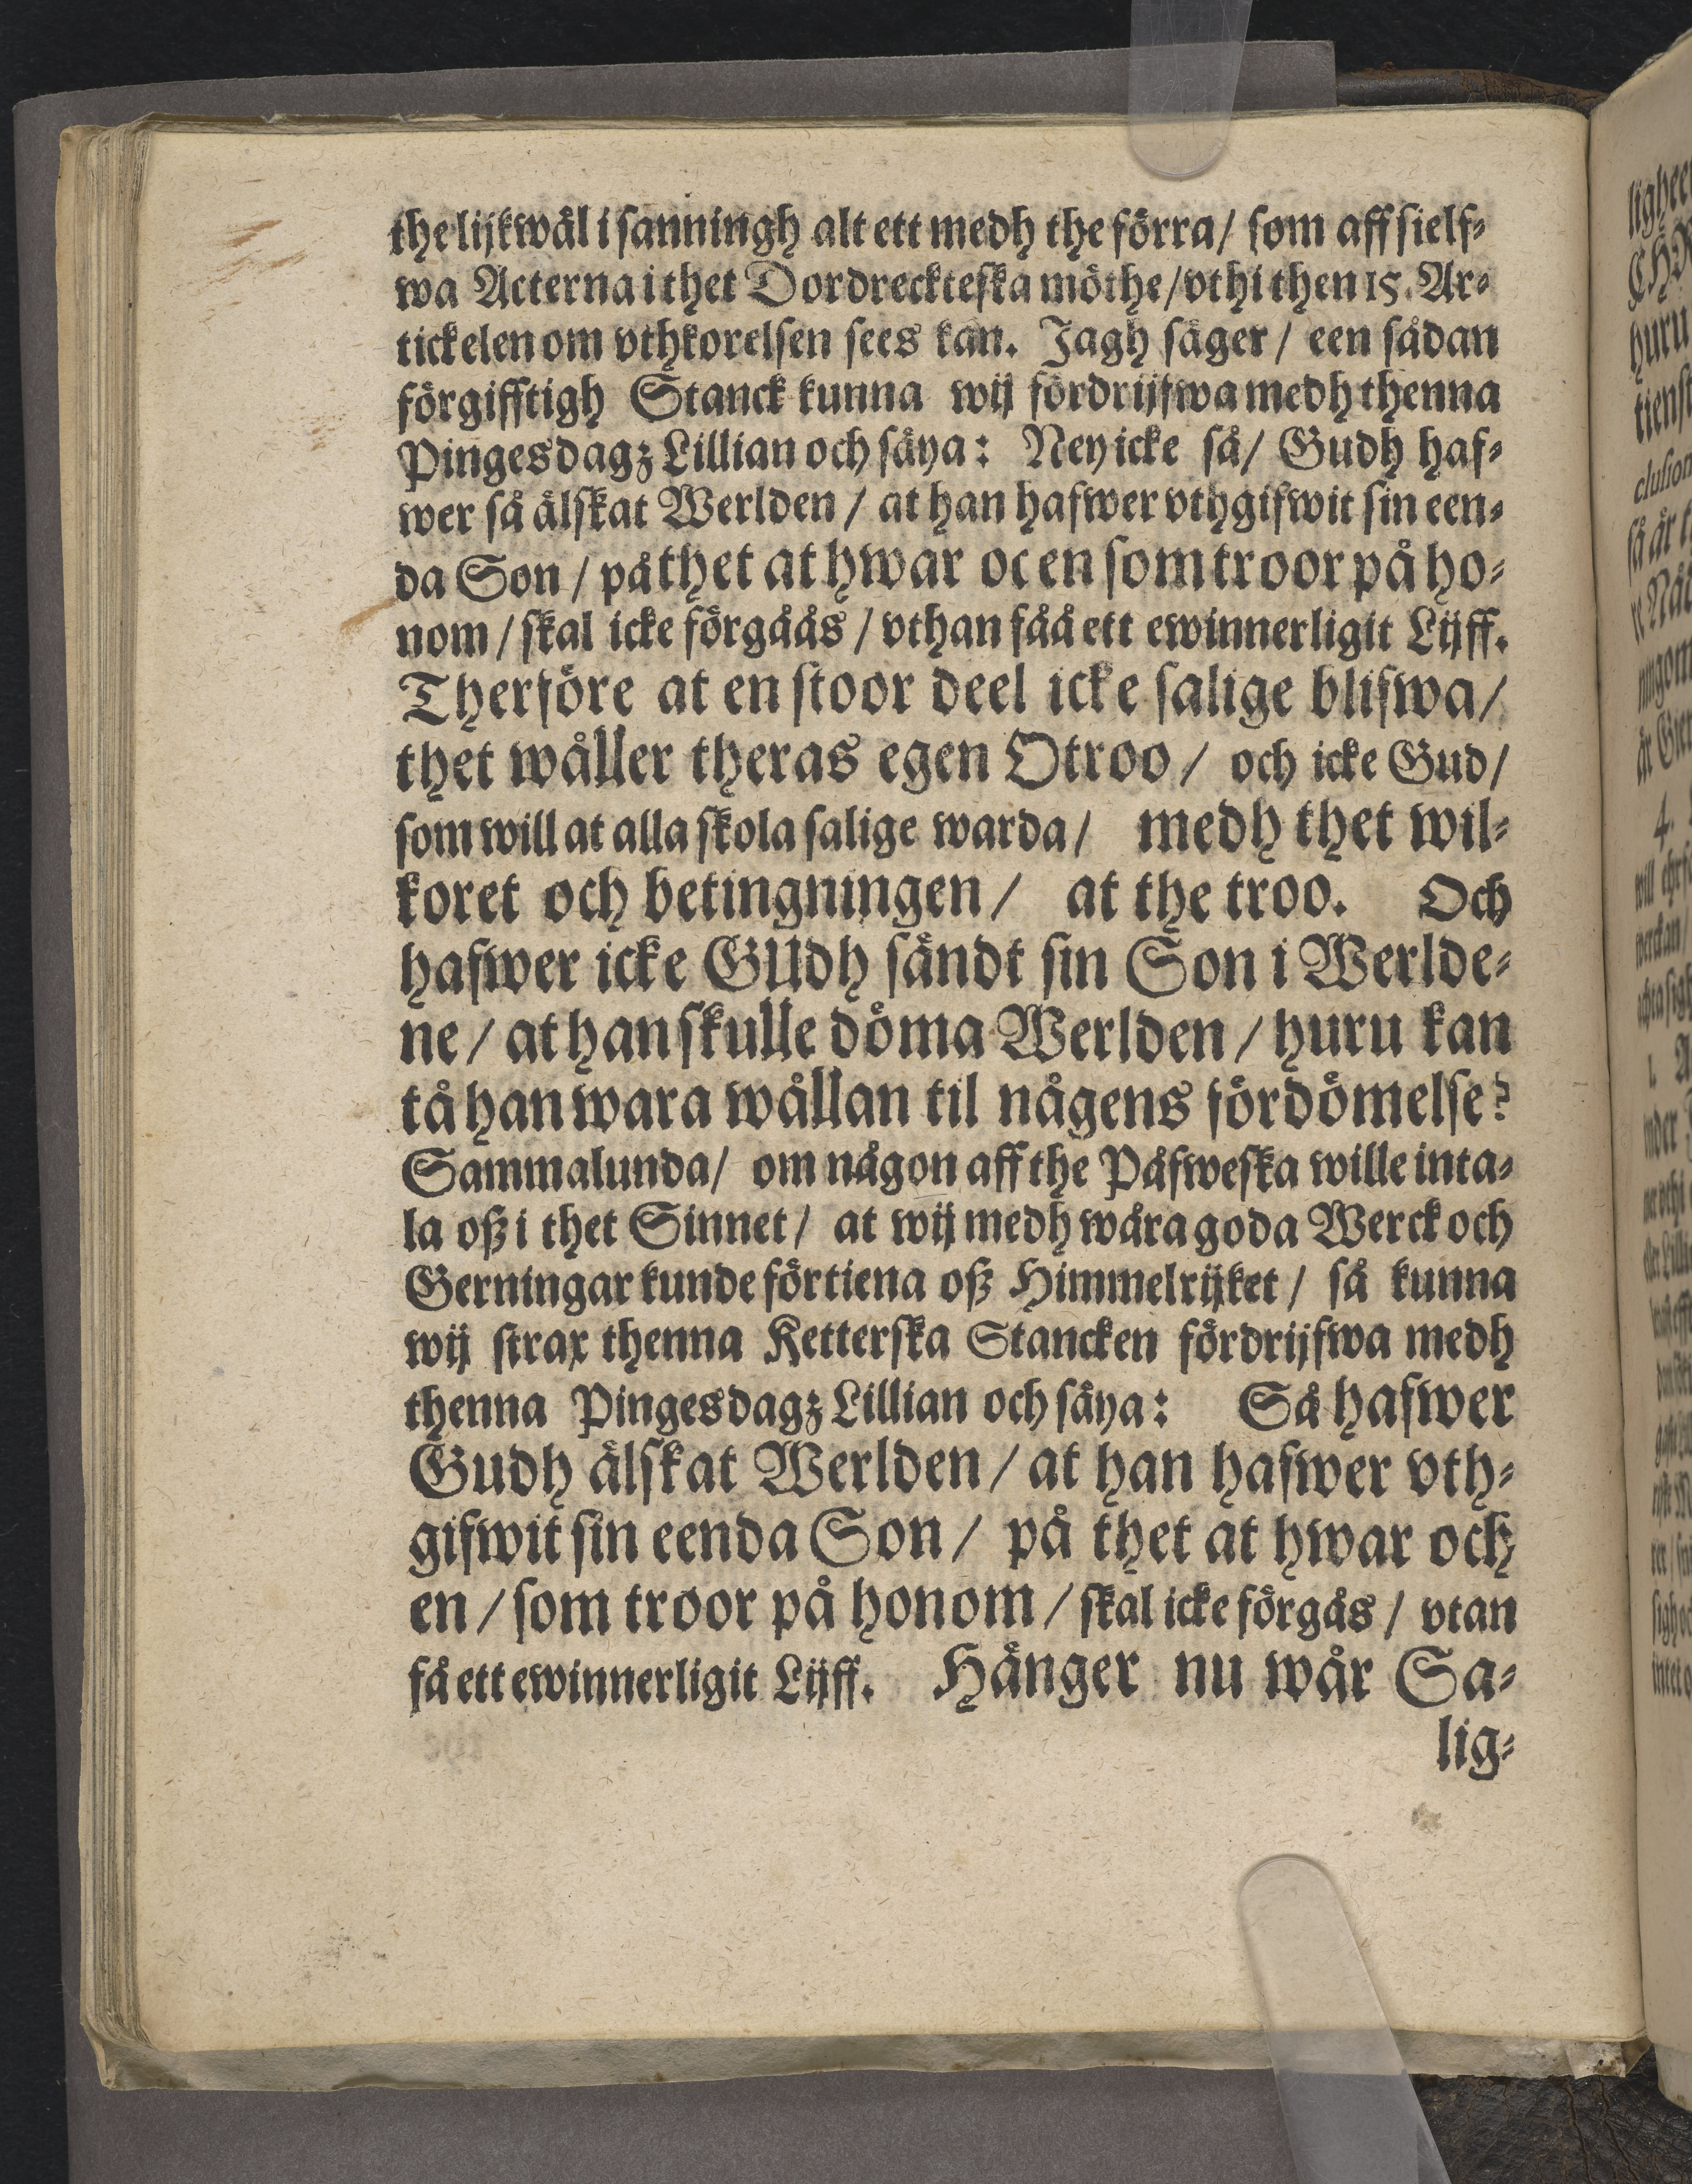 the lijkwäl i sanningh alt ett medh the förra/ som aff sielf⸗
wa Acterna i thet Dordreckteska möthe/ vthi then 15. Ar⸗
tickelen om vthkorelsen sees kan. Jagh säger/ een sådan
förgifftigh Stanck kunna wij fördrijfwa medh thenna
Pingesdagz Lillian och säya: Ney icke så/ Gudh haf⸗
wer så älskat Werlden/ at han hafwer vthgifwit sin een⸗
da Son/ på thet at hwar oc en som troor på ho⸗
nom/ skal icke förgåås/ vthan fåå ett ewinnerligit Lijff.
Therföre at en stoor deel icke salige blifwa/
thet wåller theras egen Otroo/ och icke Gud/
som will at alla skola salige warda/ medh thet wil⸗
koret och betingningen/ at the troo. Och
hafwer icke GUdh sändt sin Son i Werlde⸗
ne/ at han skulle döma Werlden/ huru kan
tå han wara wållan til någens fördömelse?
Sammalunda/ om någon aff the Påfweska wille inta⸗
la oß i thet Sinnet/ at wij medh wåra goda Werck och
Gerningar kunde förtiena oß Himmelrijket/ så kunna
wij strax thenna Ketterska Stancken fördrijfwa medh
thenna Pingesdagz Lillian och säya: Så hafwer
Gudh älskat Werlden/ at han hafwer vth⸗
gifwit sin eenda Son/ på thet at hwar och
en/ som troor på honom/ skal icke förgås/ vtan
få ett ewinnerligit Lijff. Hänger nu wår Sa⸗
lig⸗